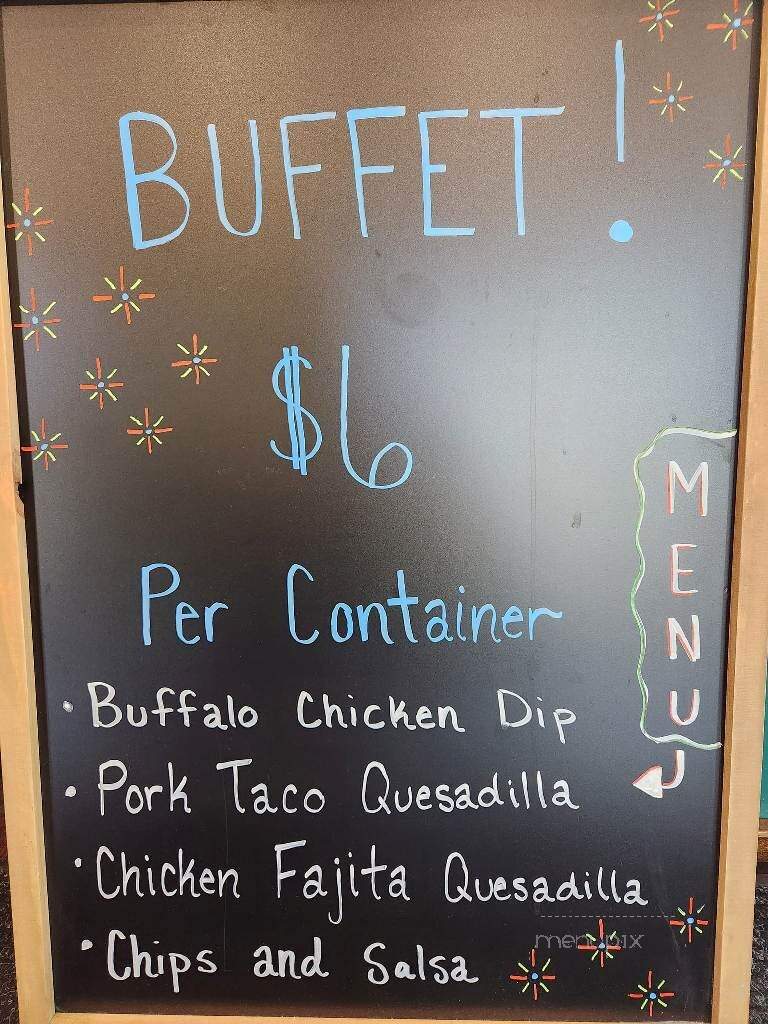 BUFFET!
$6
Per Container
MENU
• Buffalo Chicken Dip
• Pork Taco Quesadilla
• Chicken Fajita Quesadilla
• Chips and Salsa
menupix